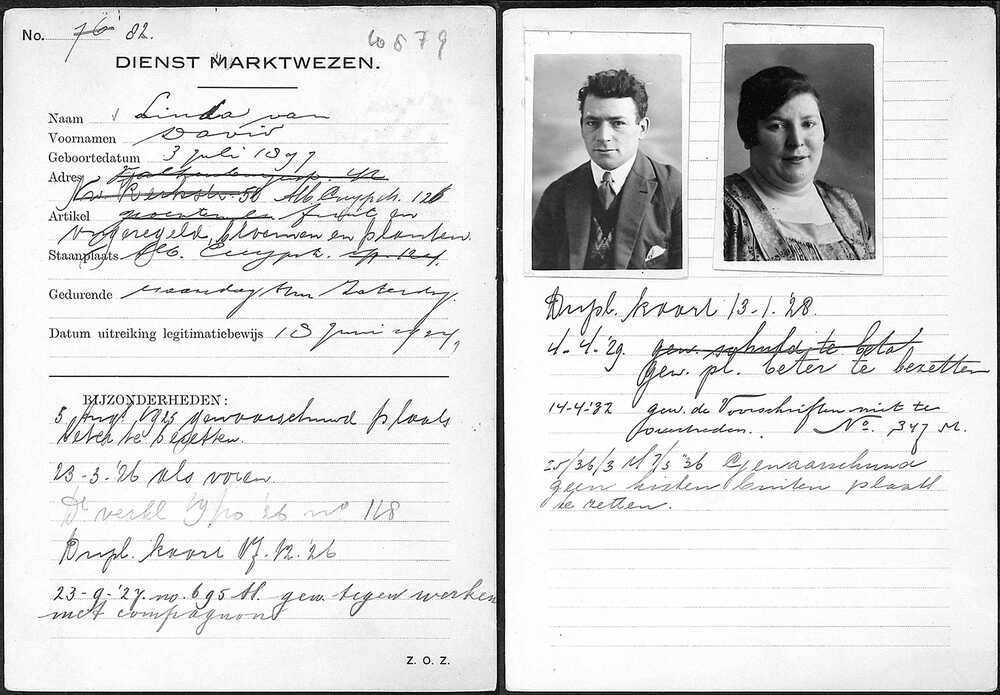 No. 76 82.
10579
DIENST MARKTWEZEN.
Naam Linda van
Voornamen David
Geboortedatum 3 juli 1897
Adres
50 Alb. Cuypstr. 126
Artikel groenten en fruit en
ongeregeld, bloemen en planten.
Staanplaats Alb. Cuypstr.
Gedurende Maandag t/m Zaterdag.
Datum uitreiking legitimatiebewijs 13 Juni 1924,
BIJZONDERHEDEN:
5 Aug. 1925 gewaarschuwd plaats
beter te bezetten.
23-3-'26 als voren
Dr verkl 19/10 '26 no 118
Dupl. kaart 17.12.'26
23-9-'27. no. 695 M. gew. tegen werken
met compagnon
Z. O. Z.
Dupl. kaart 13-1-'28.
4-4-'29. gew. schuld te bet.
Gew. pl. beter te bezetten
14-4-'32 gew. de Voorschriften niet te
overtreden. No. 347 M.
25/36/3 M 7/3 '36 Gewaarschuwd
geen kisten buiten plaats
te zetten.